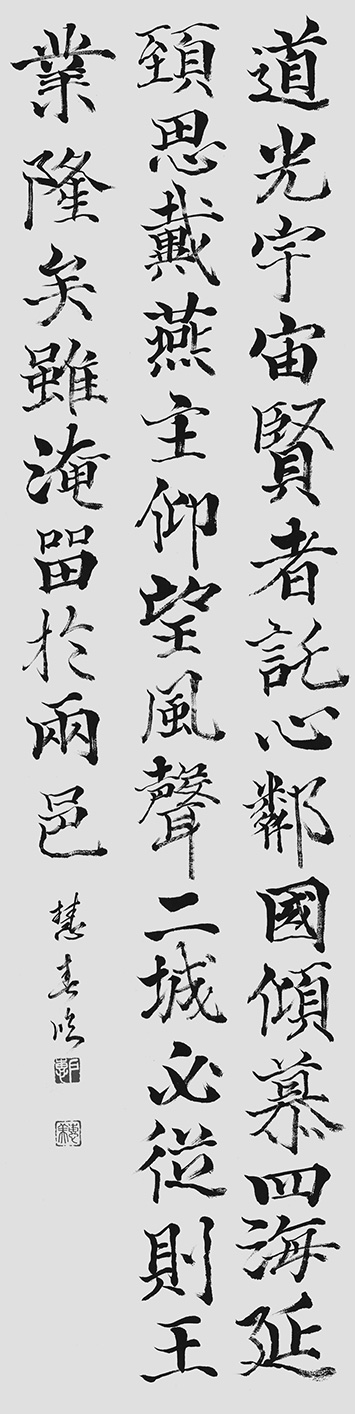 道光宇宙賢者託心鄰國傾慕四海延
頸思戴燕主仰望風聲二城必従則王
業隆矣雖淹留於兩邑
慧春臨